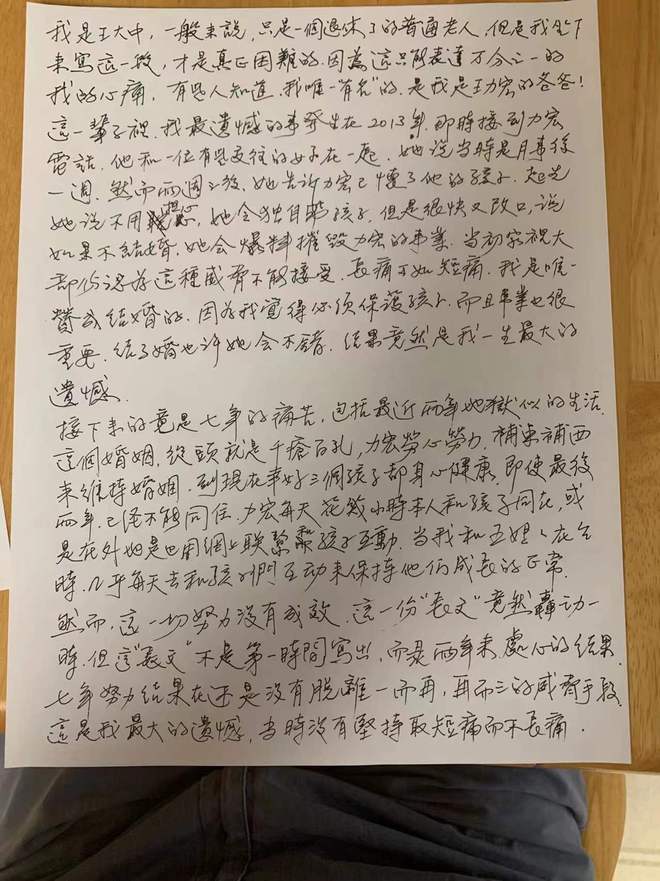 我是王大中，一般來說，只是一個退休了的普通老人，但是我坐下
來寫這一般，才是真正困難的，因為這只能表達万分之一的
我的心痛，有些人知道，我唯一"有名"的，是我是王力宏的爸爸！
這一輩子裡，我最遺憾的事發生在2013年，即時接到力宏
電話，他和一位有些交往的女子在一起，她說當時是月事後
一週，然而兩週之後，她告訴力宏已懷了他的孩子，起先
她說不用擔心，她会独自養孩子，但是很快又改口，說
如果不結婚，她会爆料摧毀力宏的事業，當初家裡大
部份認為這種威脅不能接受，長痛不如短痛，我是唯一
贊成結婚的，因為我覺得必須保護孩子，而且事業也很
重要，結了婚也許她会不錯，結果竟然是我一生最大的
遺憾。
接下來的竟是七年的痛苦，包括最近兩年地獄似的生活，
這個婚姻，從頭就是千瘡百孔，力宏勞心勞力，補東補西
來維持婚姻，到現在幸好三個孩子都身心健康，即使最後
兩年，已經不能同住，力宏每天花幾小時本人和孩子同在，或
是在外地是用網上聯繫和孩子互動，当我和五姐人在台
時，几乎每天去和孩子們互動來保持他們成長的正常，
然而，這一切努力沒有成效，這一份"長文"竟然轟动一
時，但這"長文"不是第一時間寫出，而是兩年來處心的結果，
七年努力結果在還是沒有脫離一而再，再而三的威脅手段，
這是我最大的遺憾，当時沒有堅持取短痛而不長痛．